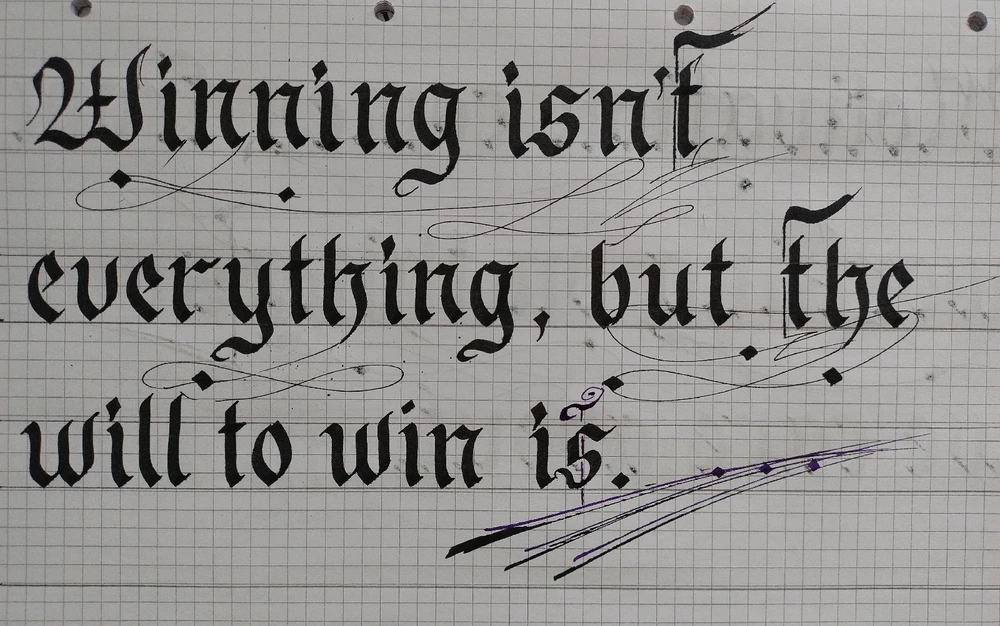 Winning isn't
everything, but the
will to win is.